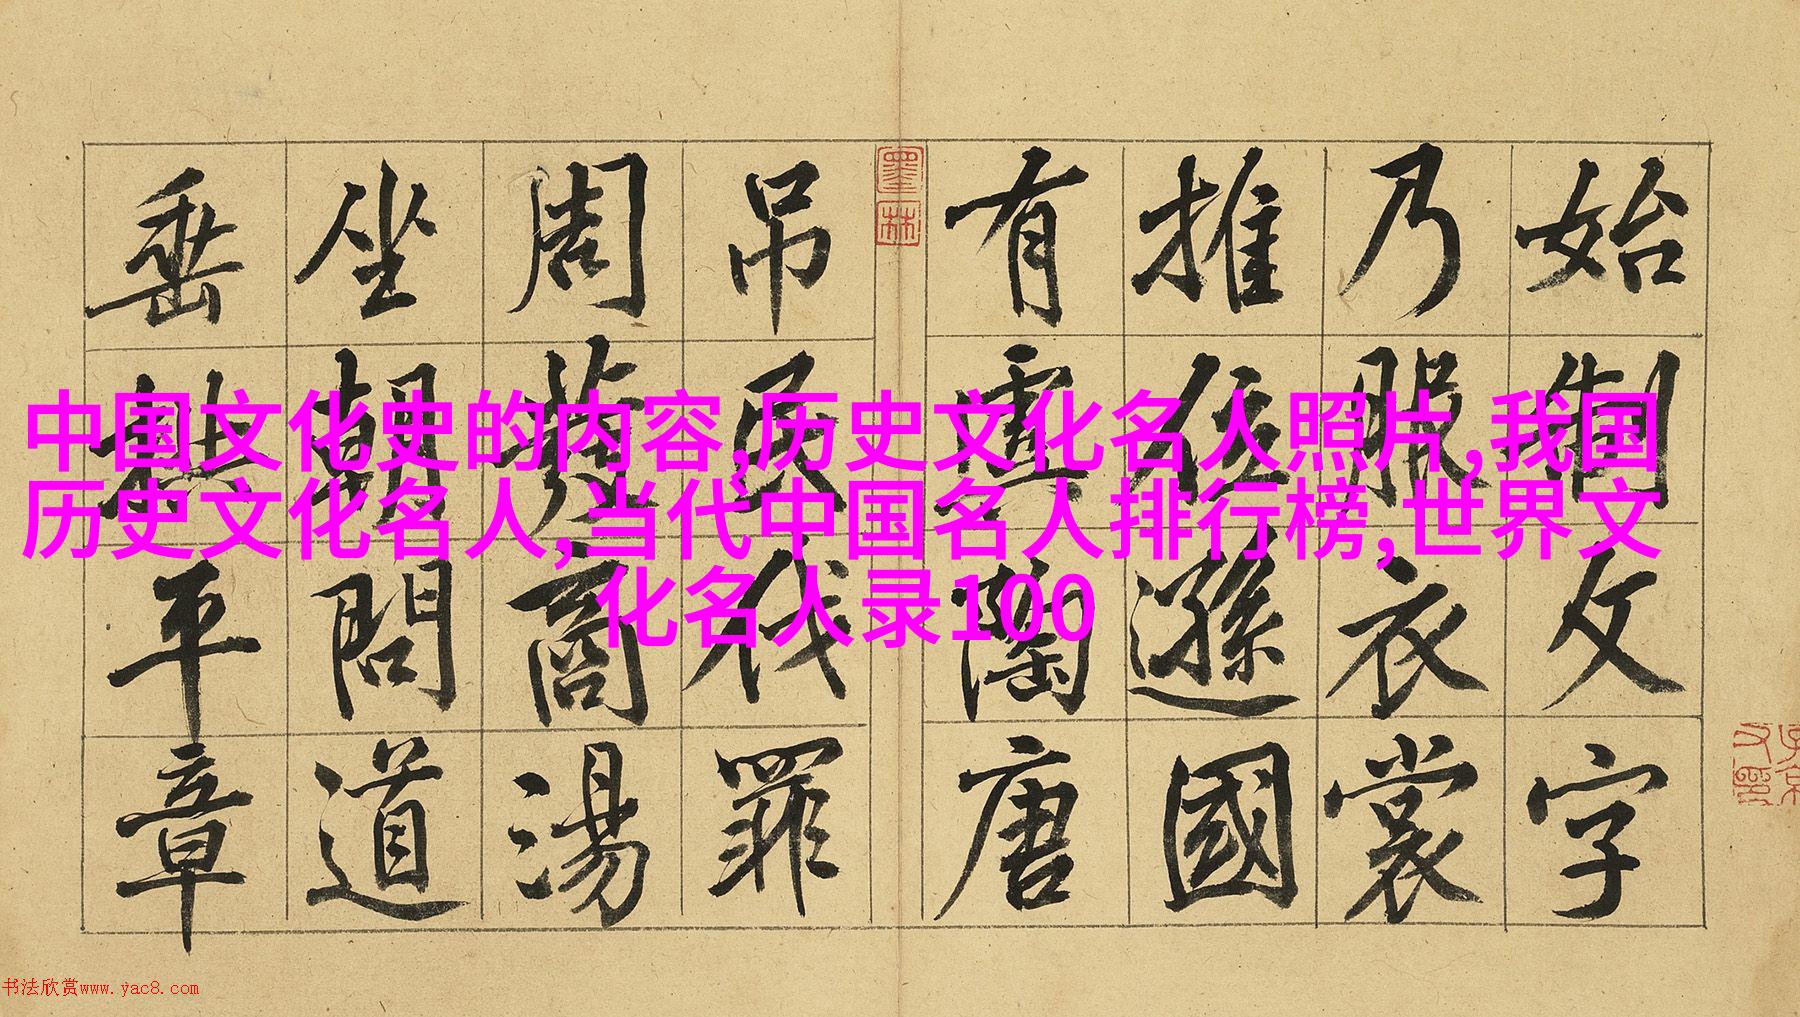 中国文化史的内容,历史文化名人照片,我国
历史文化名人,当代中国名人排行榜,世界文
化名人录100
始制文字
乃服衣裳
推位遜國
有虞陶唐
吊民伐罪
周發商湯
坐朝問道
垂拱平章
墨林
书法欣赏www.yac8.com